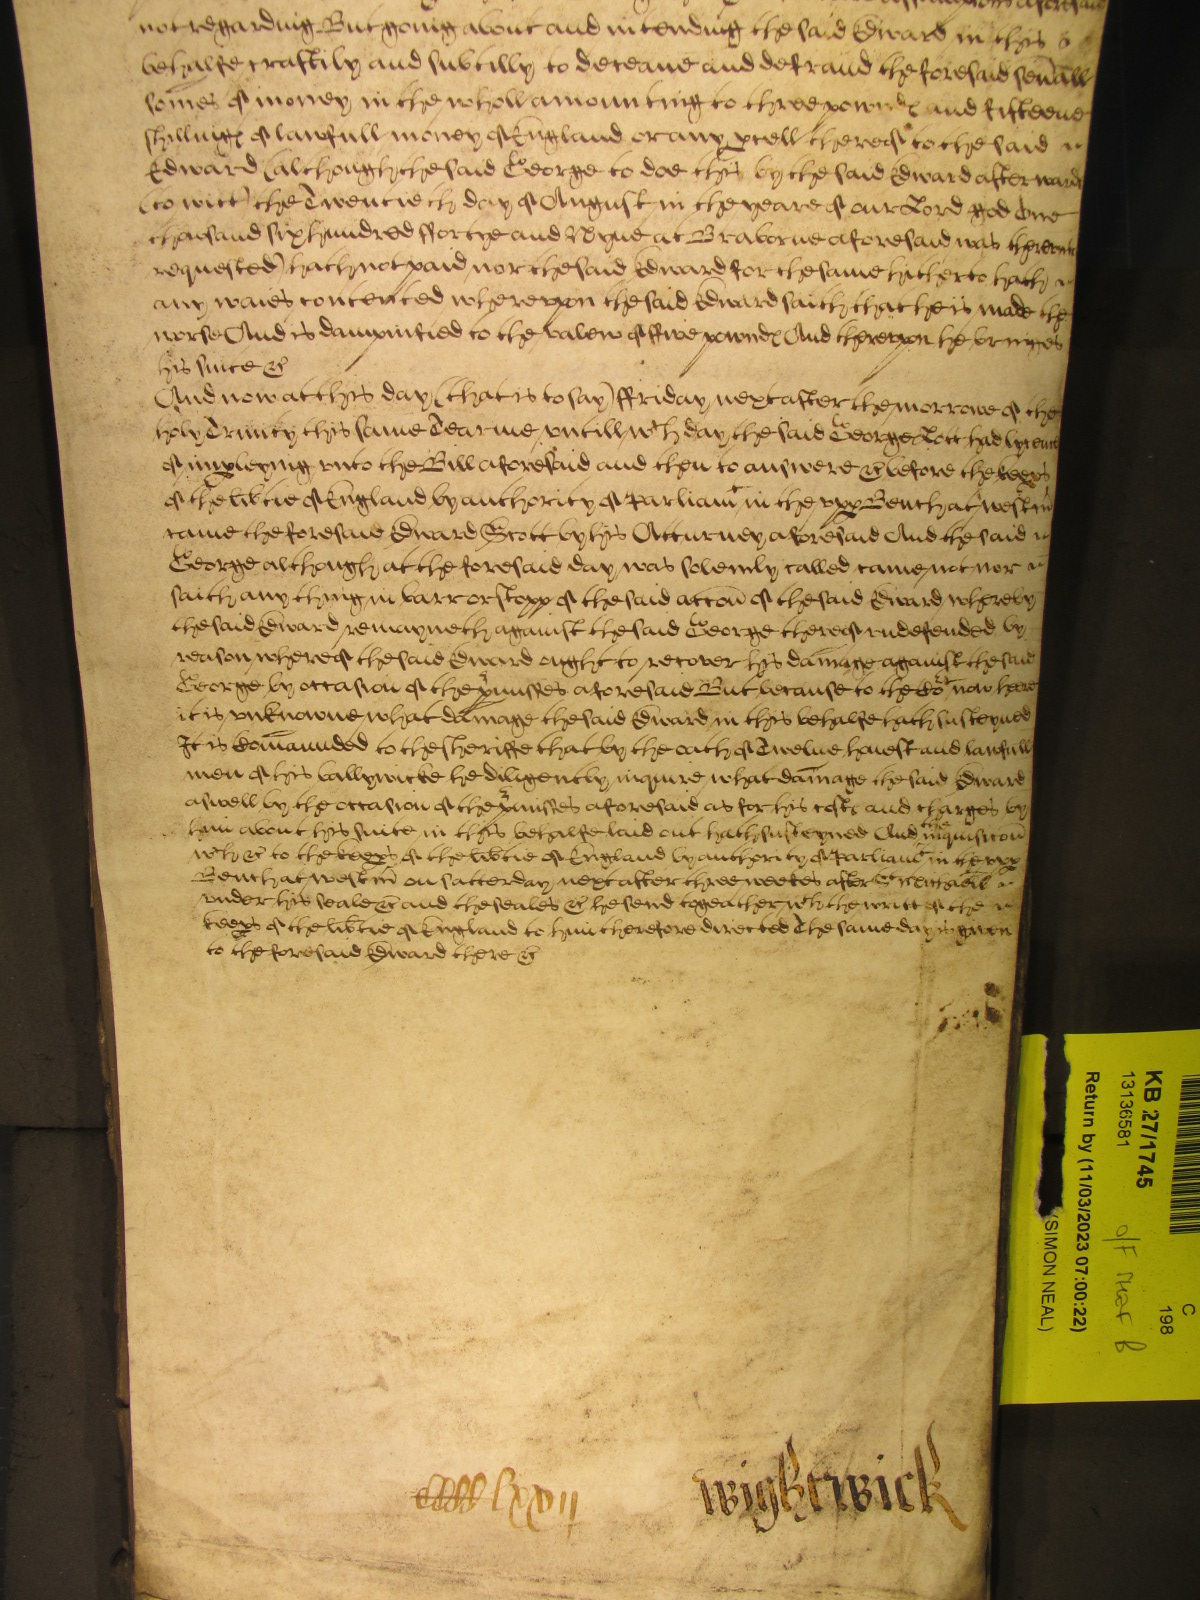 aforesaid
not regarding But going about and intending the said Edward in this
behalfe craftily and subtilly to deceave and defraud the foresaid seũall
somes of money in the wholl amounting to three pownds and fifteene
shillings of lawfull money of England or any pcell thereof to the said
Edward (although the said George to doe this by the said Edward afterwards
(to witt) the Twentieth day of August in the yeare of our Lord god One
thousand six hundred ffortye and Nyne at Braborne aforesaid was thereunto
requested) hath not paid nor the said Edward for the same hitherto hath
any waies contented whereupon the said Edward saith that he is made the
worse And is dampnified to the valew of ffive pownds And thereupon he bringes
his suite &c
And now at this day (that is to say) ffriday next after the morrowe of the
holy Trinity this same Tearme untill wch day the said George Lott had lycence
of impleying unto the Bill aforesaid and then to answere &c before the keeps
of the libtie of England by authority of Parliamt in the upp Bench at Westm̃
came the foresaid Edward Scott by his Atturney aforesaid And the said
George although at the foresaid day was solemly called came not nor
saith any thing in barr or stopp of the said accoñ of the said Edward whereby
the said Edward remayneth against the said George thereof undefended by
reason whereof the said Edward ought to recover his damage against the said
George by occasion of the pmisses aforesaid But because to the Cort now heere
it is unknowne what damage the said Edward in this behalfe hath susteyned
It is Comaunded to the Sheriffe that by the oath of Twelve honest and lawfull
men of his ballywicke he diligently inquire what damage the said Edward
aswell by the occasion of the pmisses aforesaid as for his costs and charges by
him about his suite in this behalfe laid out hath susteyned And the inquisicoñ
wch &c to the keeps of the libtie of England by authority of Parliamt in the upp
Bench at Westm̃ on Satterday next after three weekes after
under his seale &c and the seales &c he send togeather wth the writt of the
keeps of the libtie of England to him therefore directed The same day is given
to the foresaid Edward there &c
lxxvii
wightwick
KB 27/1745
13136581
Return by (11/03/2023 07:00:22)
(SIMON NEAL)
C
198
O/F MAP B